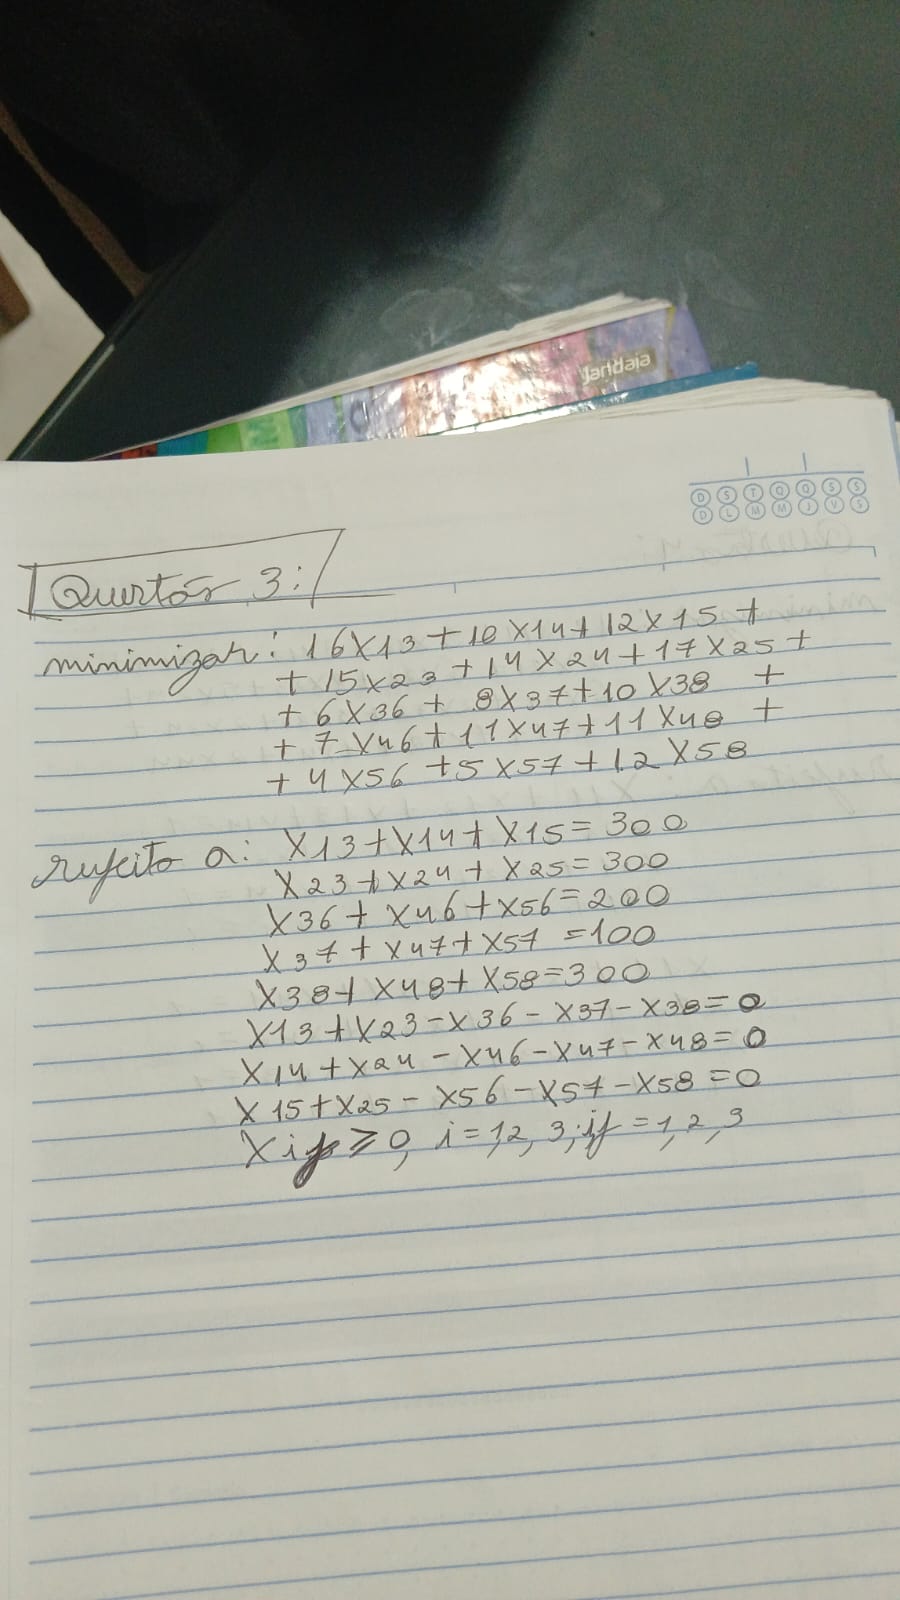 Jandaia
D S T Q Q S S
D L M M J V S
Questão 3:
minimizar: 16X13 + 10X14 + 12X15 +
+ 15X23 + 14X24 + 17X25 +
+ 6X36 + 8X37 + 10X38 +
+ 7X46 + 11X47 + 11X48 +
+ 4X56 + 5X57 + 12X58
sujeito a: X13 + X14 + X15 = 300
X23 + X24 + X25 = 300
X36 + X46 + X56 = 200
X37 + X47 + X57 = 100
X38 + X48 + X58 = 300
X13 + X23 - X36 - X37 - X38 = 0
X14 + X24 - X46 - X47 - X48 = 0
X15 + X25 - X56 - X57 - X58 = 0
Xij ≥ 0, i = 1,2,3; j = 1,2,3